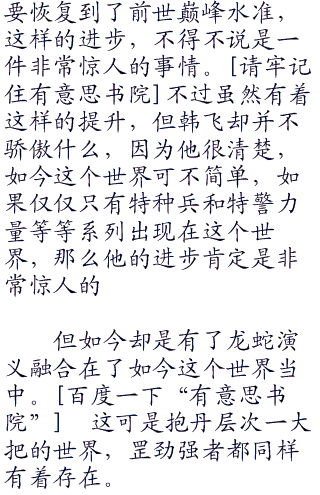 要恢复到了前世巅峰水准，
这样的进步，不得不说是一
件非常惊人的事情。[请牢记
住有意思书院]不过虽然有着
这样的提升，但韩飞却并不
骄傲什么，因为他很清楚，
如今这个世界可不简单，如
果仅仅只有特种兵和特警力
量等等系列出现在这个世
界，那么他的进步肯定是非
常惊人的
但如今却是有了龙蛇演
义融合在了如今这个世界当
中。[百度一下“有意思书
院”] 这可是抱丹层次一大
把的世界，罡劲强者都同样
有着存在。